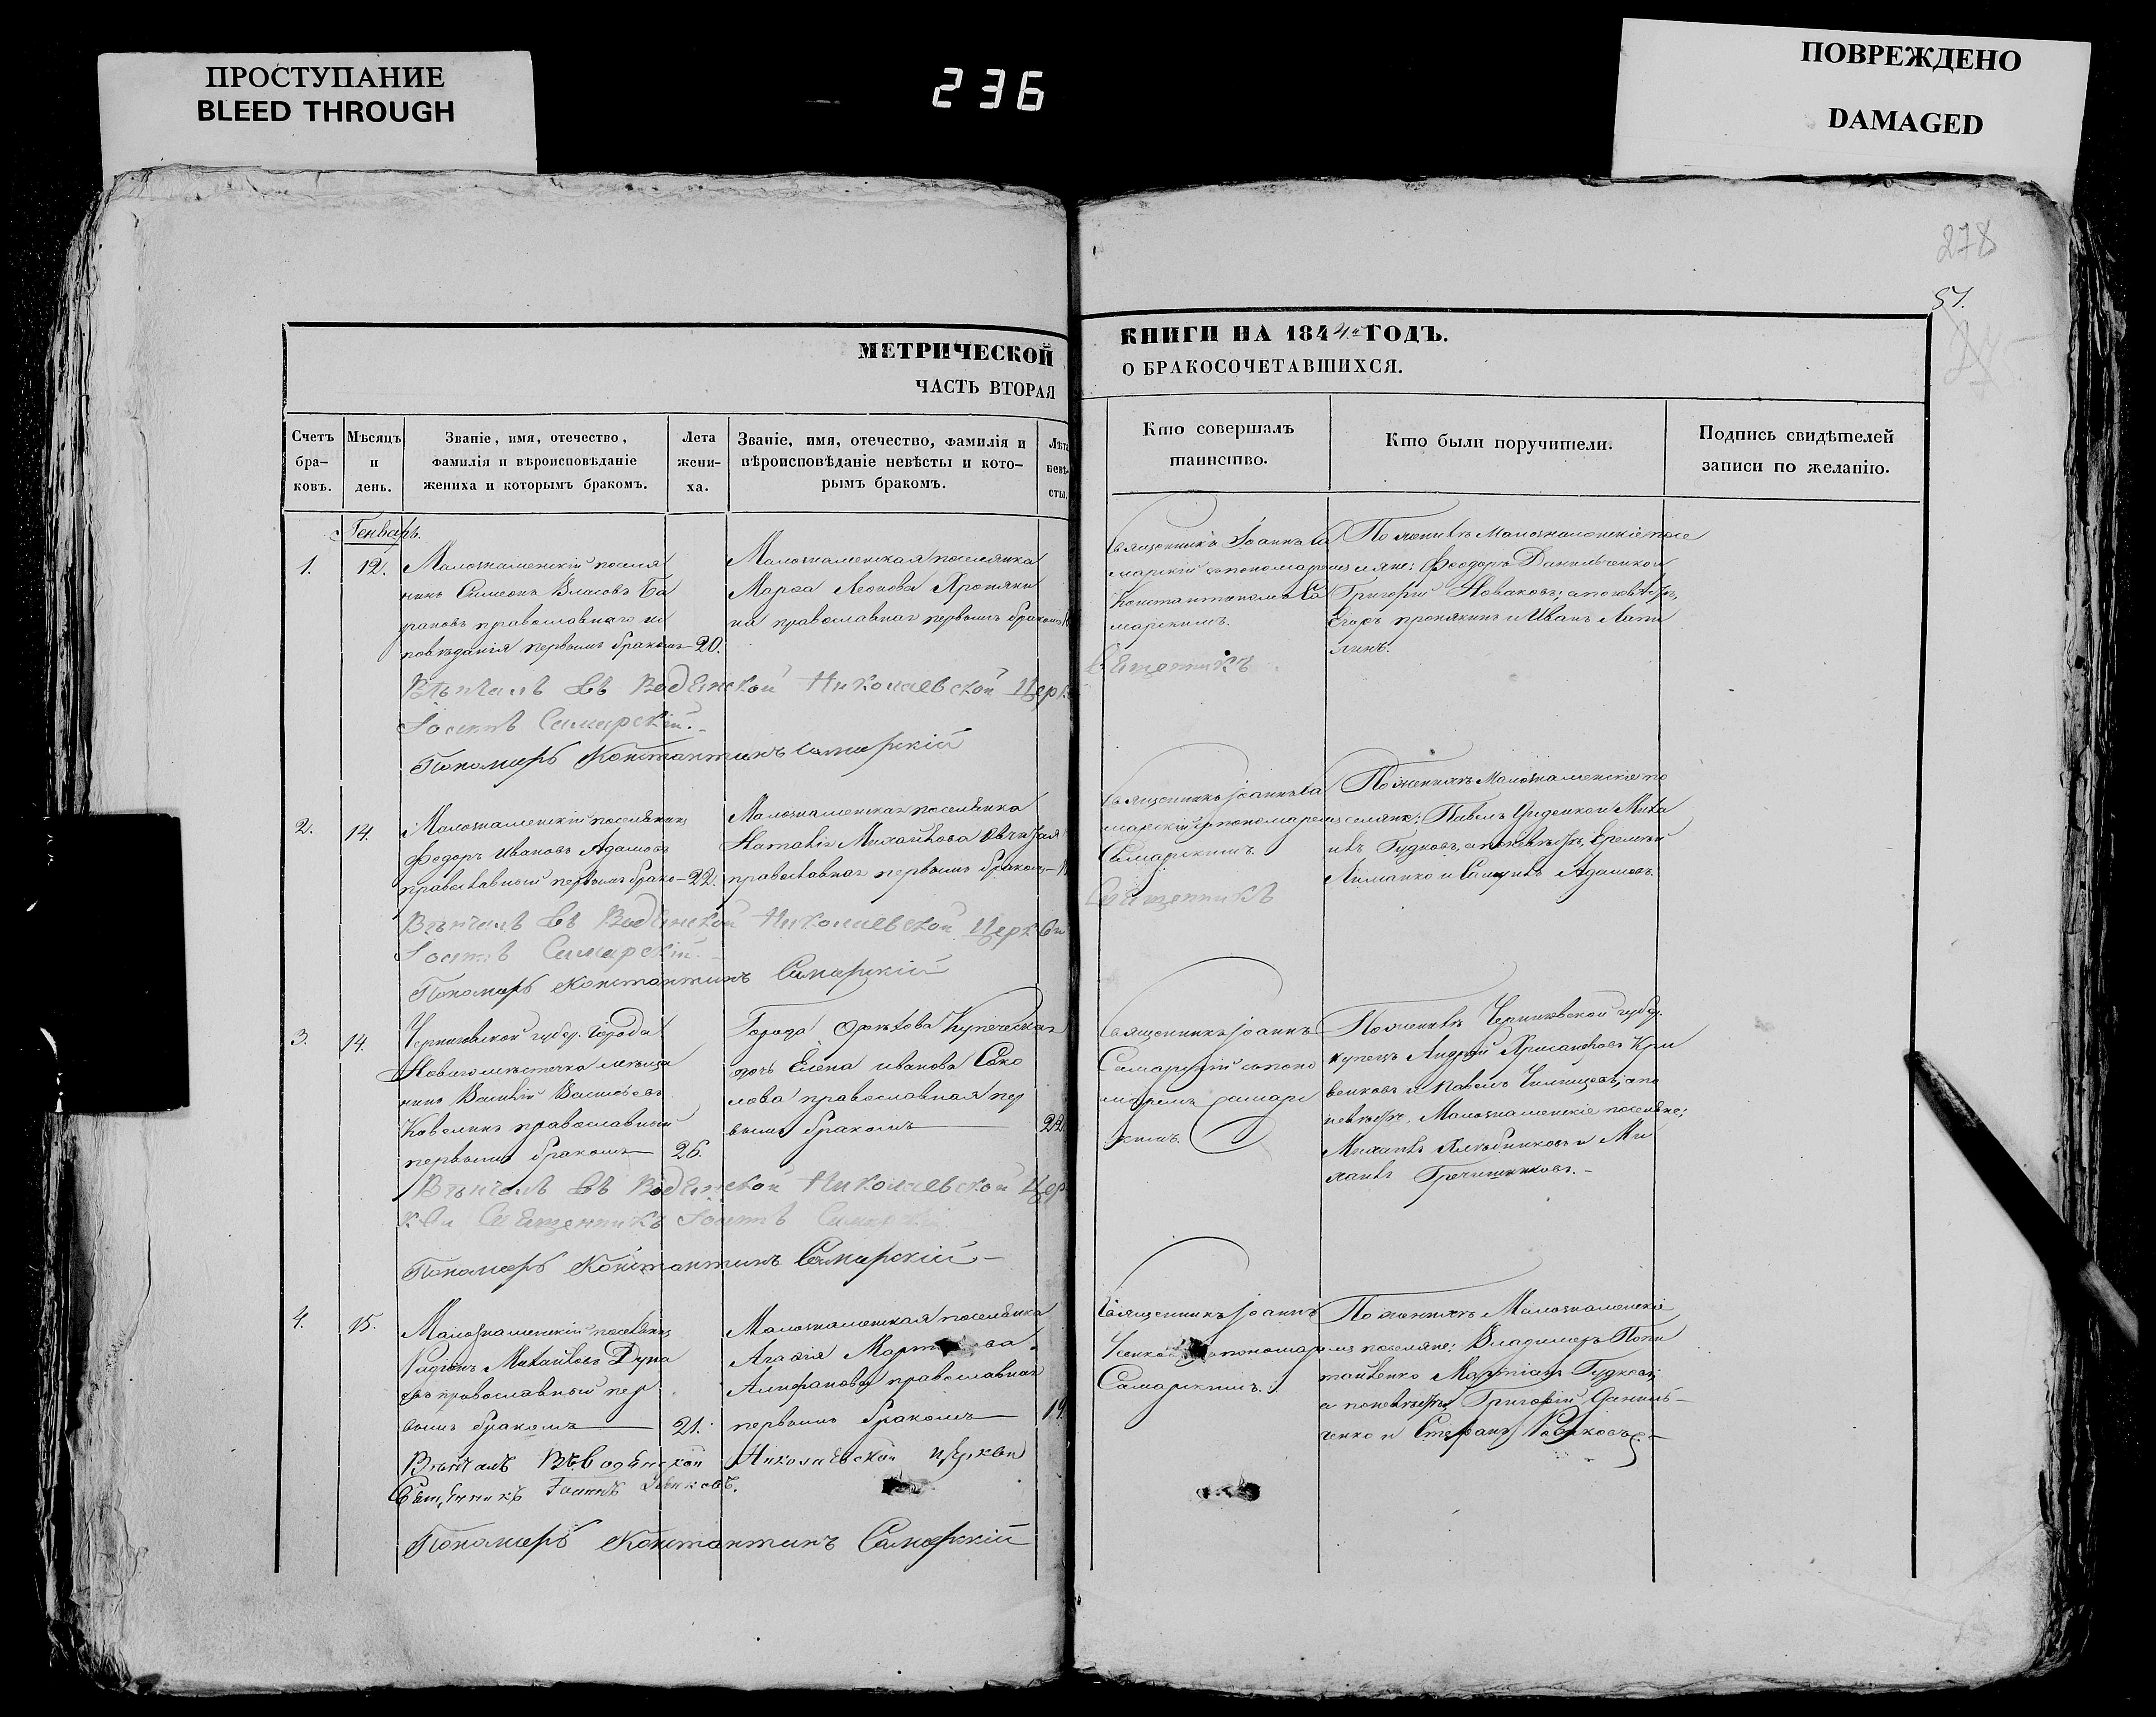 ПРОСТУПАНИЕ
BLEED THROUGH
236
ПОВРЕЖДЕНО
DAMAGED
278
51.
МЕТРИЧЕСКОЙ
ЧАСТЬ ВТОРАЯ
КНИГИ НА 1844й ГОДЪ.
О БРАКОСОЧЕТАВШИХСЯ.
Счетъ бра- ковъ.
Мѣсяцъ и день.
Званіе, имя, отечество, фамилія и вѣроисповѣданіе жениха и которымъ бракомъ.
Лета жени- ха.
Званіе, имя, отечество, фамилія и вѣроисповѣданіе невѣсты и кото- рымъ бракомъ.
Лѣта невѣ- сты.
Кто совершалъ таинство.
Кто были поручители.
Подпись свидѣтелей записи по желанію.
Генварь.
1.
12.
Малознаменскій поселя
нинъ Симеонъ Власовъ Ба
рановъ православнаго ис
повѣданія первымъ бракомъ
20.
Малознаменская поселянка
Марѳа Леонова Хропяки
на православная первымъ бракомъ
Священникъ Іоаннъ Са
марскій съ пономаремъ
Константиномъ Са
марскимъ.
По женихѣ Малознаменскіе посе
ляне: Феодоръ Данильченко и
Григорій Новаковъ; а по невѣстѣ,
Егоръ и Иванъ
Вѣнчалъ въ Водянской Николаевской Церк
Священникъ
Іоаннъ Самарскій.
Пономарь Константинъ Самарскій
2.
14.
Малознаменскій поселянинъ
Федоръ Ивановъ Адамовъ
православный первымъ брако
22.
Малознаменская поселянка
Наталія Михайлова
православная первымъ бракомъ
Священникъ Іоаннъ Са
марскій съ пономаремъ
Самарскимъ.
По женихѣ Малознаменскіе по
селяне: Павелъ Диденко и Миха
илъ Гудковъ, а по невѣстѣ, Еремѣй
Лиманко и Адамовъ.
Вѣнчалъ въ Водянской Николаевской Церкви
Священникъ
Іоаннъ Самарскій.
Пономарь Константинъ Самарскій
3.
14.
Черниговской губер. города
Новагомѣстечка мѣща
нинъ Василій Васильевъ
Ковелинъ православный
первымъ бракомъ
26.
Города Орѣхова Купеческая
дочь Елена Иванова Соко
лова православная пер
вымъ бракомъ
22.
Священникъ Іоаннъ
Самарскій съ поно
маремъ Самарс
кимъ.
По женихѣ Черниговской губер.
купецъ Андрей Хрисанфовъ Кри
венковъ и Павелъ а по
невѣстѣ, Малознаменскіе поселяне:
Михаилъ и Ми
хаилъ Гречишниковъ.
Вѣнчалъ въ Водянской Николаевской Цер
кви Священникъ Іоаннъ Самарскій
Пономарь Константинъ Самарскій
4.
15.
Малознаменскій поселянинъ
Родіонъ Михайловъ
православный пер
вымъ бракомъ
21.
Малознаменская поселянка
Агафія
Алифанова православная
первымъ бракомъ
19.
Священникъ Іоаннъ
съ пономаремъ
Самарскимъ.
По женихѣ Малознаменскіе
поселяне: Владимеръ Попи
Гудковъ;
а по невѣстѣ Григорій Даниль
ченко и Стефанъ Новаковъ.
Вѣнчалъ Въ Водянской Николаевской церкви
Священникъ Іоаннъ
Пономарь Константинъ Самарскій